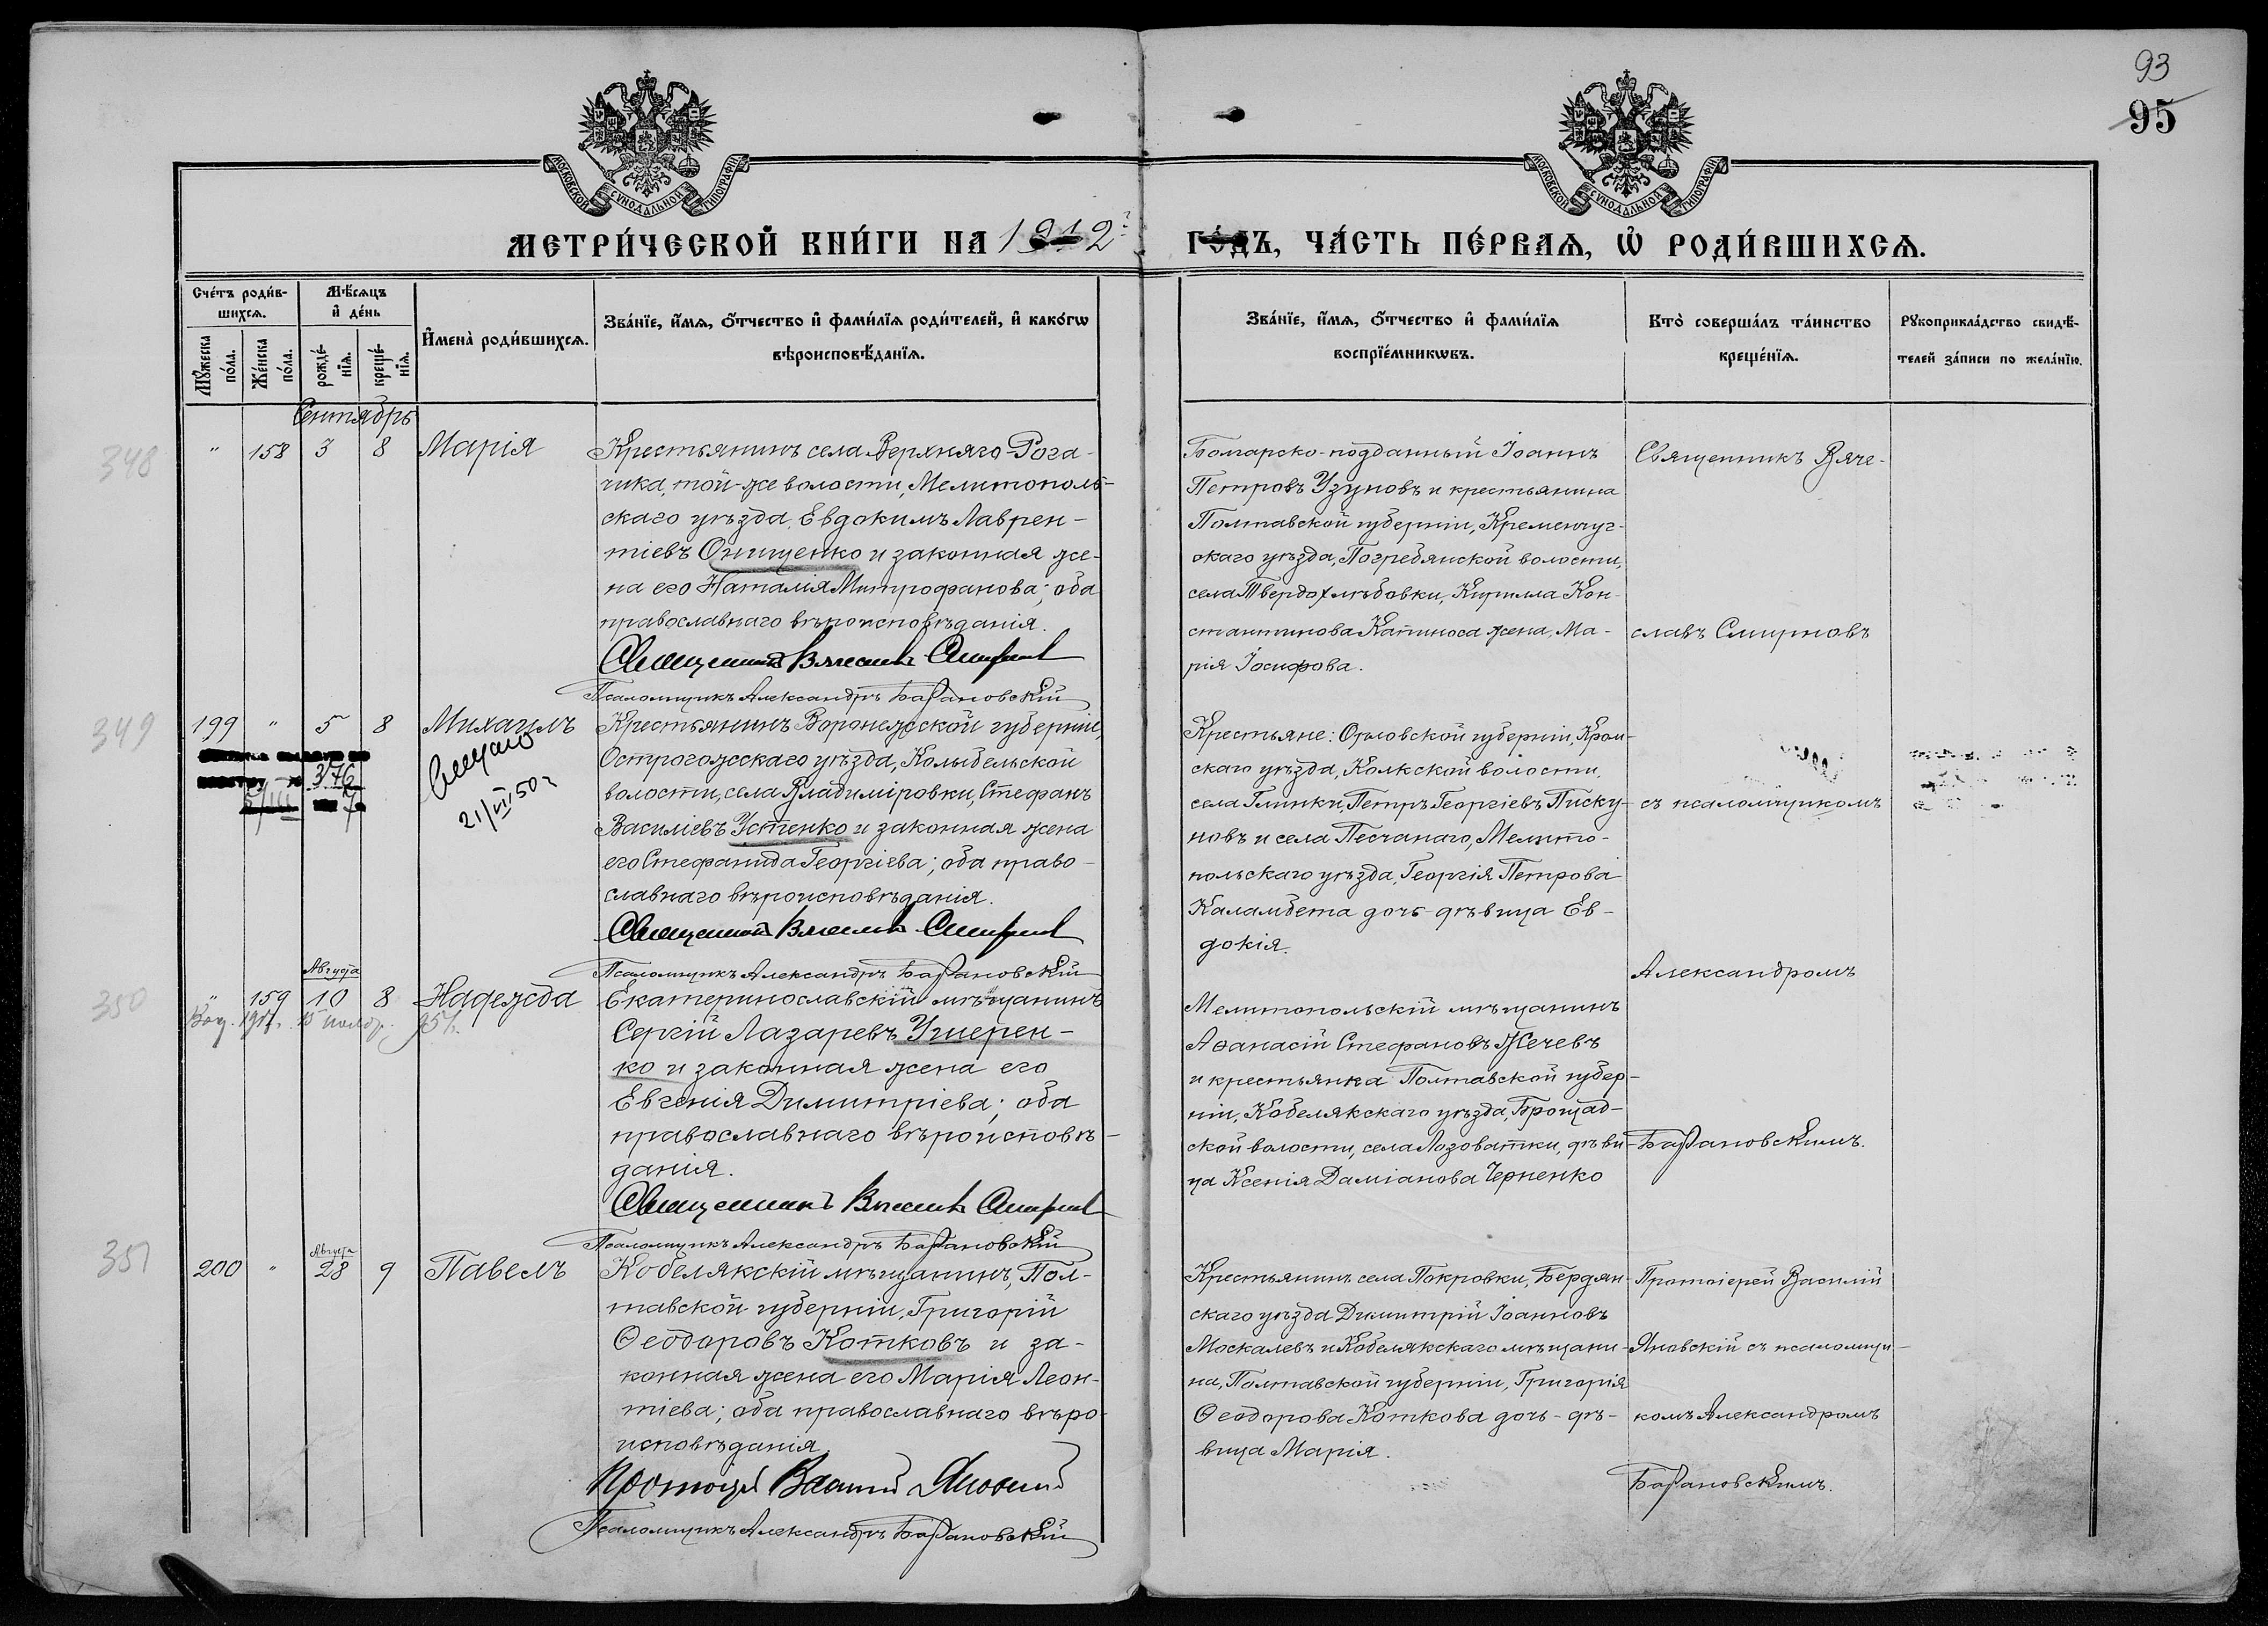 93
95
МОСКОВСКОЙ СѴНОДАЛЬНОЙ ТИПОГРАФІИ
МОСКОВСКОЙ СѴНОДАЛЬНОЙ ТИПОГРАФІИ
МЕТРИ́ЧЕСКОЙ КНИ́ГИ НА 1912 ГО́ДЪ, ЧА́СТЬ ПЕ́РВАѦ, Ѡ҆ РОДИ́ВШИХСѦ.
Сче́тъ роди́в-
шихсѧ.
Мꙋ́жеска по́ла.
Же́нска по́ла.
Мѣ́сѧцъ
и҆ де́нь
рожде́-нїѧ.
креще́-нїѧ.
И҆мена̀ роди́вшихсѧ.
Зва́нїе, и҆́мѧ, ѻ҆́тчество и҆ фами́лїѧ роди́телей, и҆ како́гѡ
вѣроисповѣ́данїѧ.
Зва́нїе, и҆́мѧ, ѻ҆́тчество и҆ фами́лїѧ
воспрїе́мникѡвъ.
Кто̀ соверша́лъ та́инство
креще́нїѧ.
Рꙋкоприкла́дство свидѣ́-
телей за́писи по жела́нїю.
Сентябрь
348
" 158 3 8 Марія
Крестьянинъ села Верхняго-Рога-
чика, той-же волости, Мелитополь-
скаго уѣзда, Евдокимъ Лаврен-
тіевъ Онищенко и законная же-
на его Наталія Митрофанова; оба
православнаго вѣроисповѣданія.
Священникъ Вячеславъ Смирновъ
Псаломщикъ Александръ Барановскій
Болгарско-подданный Іоаннъ
Петровъ Узуновъ и крестьянина
Полтавской губерніи, Кременчуг-
скаго уѣзда, Погребянской волости,
села Твердохлѣбовки, Кирилла Кон-
стантинова Капиноса жена, Ма-
рія Іосифова.
Священникъ Вяче-
славъ Смирновъ
349
199 " 5 8 Михаилъ
376
21/III 50 г
Крестьянинъ Воронежской губерніи,
Острогожскаго уѣзда, Колыбельской
волости, села Владиміровки, Стефанъ
Василіевъ Устенко и законная жена
его Стефанида Георгіева; оба право-
славнаго вѣроисповѣданія.
Священникъ Вячеславъ Смирновъ
Псаломщикъ Александръ Барановскій
Крестьяне: Орловской губерніи, Кром-
скаго уѣзда, Колкской волости,
села Глинки, Петръ Георгіевъ Писку-
новъ и села Песчанаго, Мелито-
польскаго уѣзда, Георгія Петрова
Каламбета дочь-дѣвица Ев-
докія.
съ псаломщикомъ
Александромъ
350
Августа
" 159 10 8 Надежда
Екатеринославскій мѣщанинъ
Сергій Лазаревъ Угнерен-
ко и законная жена его
Евгенія Димитріева; оба
православнаго вѣроисповѣ-
данія.
Священникъ Вячеславъ Смирновъ
Псаломщикъ Александръ Барановскій
Мелитопольскій мѣщанинъ
Аѳанасій Стефановъ Жечевъ
и крестьянка Полтавской губер-
ніи, Кобелякскаго уѣзда,
ской волости, села Лозоватки, дѣви-
ца Ксенія Даміанова Черненко
Барановскимъ.
351
Августа
200 " 28 9 Павелъ
Кобелякскій мѣщанинъ, Пол-
тавской губерніи, Григорій
Ѳеодоровъ Котковъ и за-
конная жена его Марія Леон-
тіева; оба православнаго вѣро-
исповѣданія.
Протоіерей Василій Яновскій
Псаломщикъ Александръ Барановскій
Крестьянинъ села Покровки, Бердян-
скаго уѣзда Димитрій Іоанновъ
Москалевъ и Кобелякскаго мѣщани-
на, Полтавской губерніи, Григорія
Ѳеодорова Коткова дочь-дѣ-
вица Марія.
Протоіерей Василій
Яновскій съ псаломщи-
комъ Александромъ
Барановскимъ.